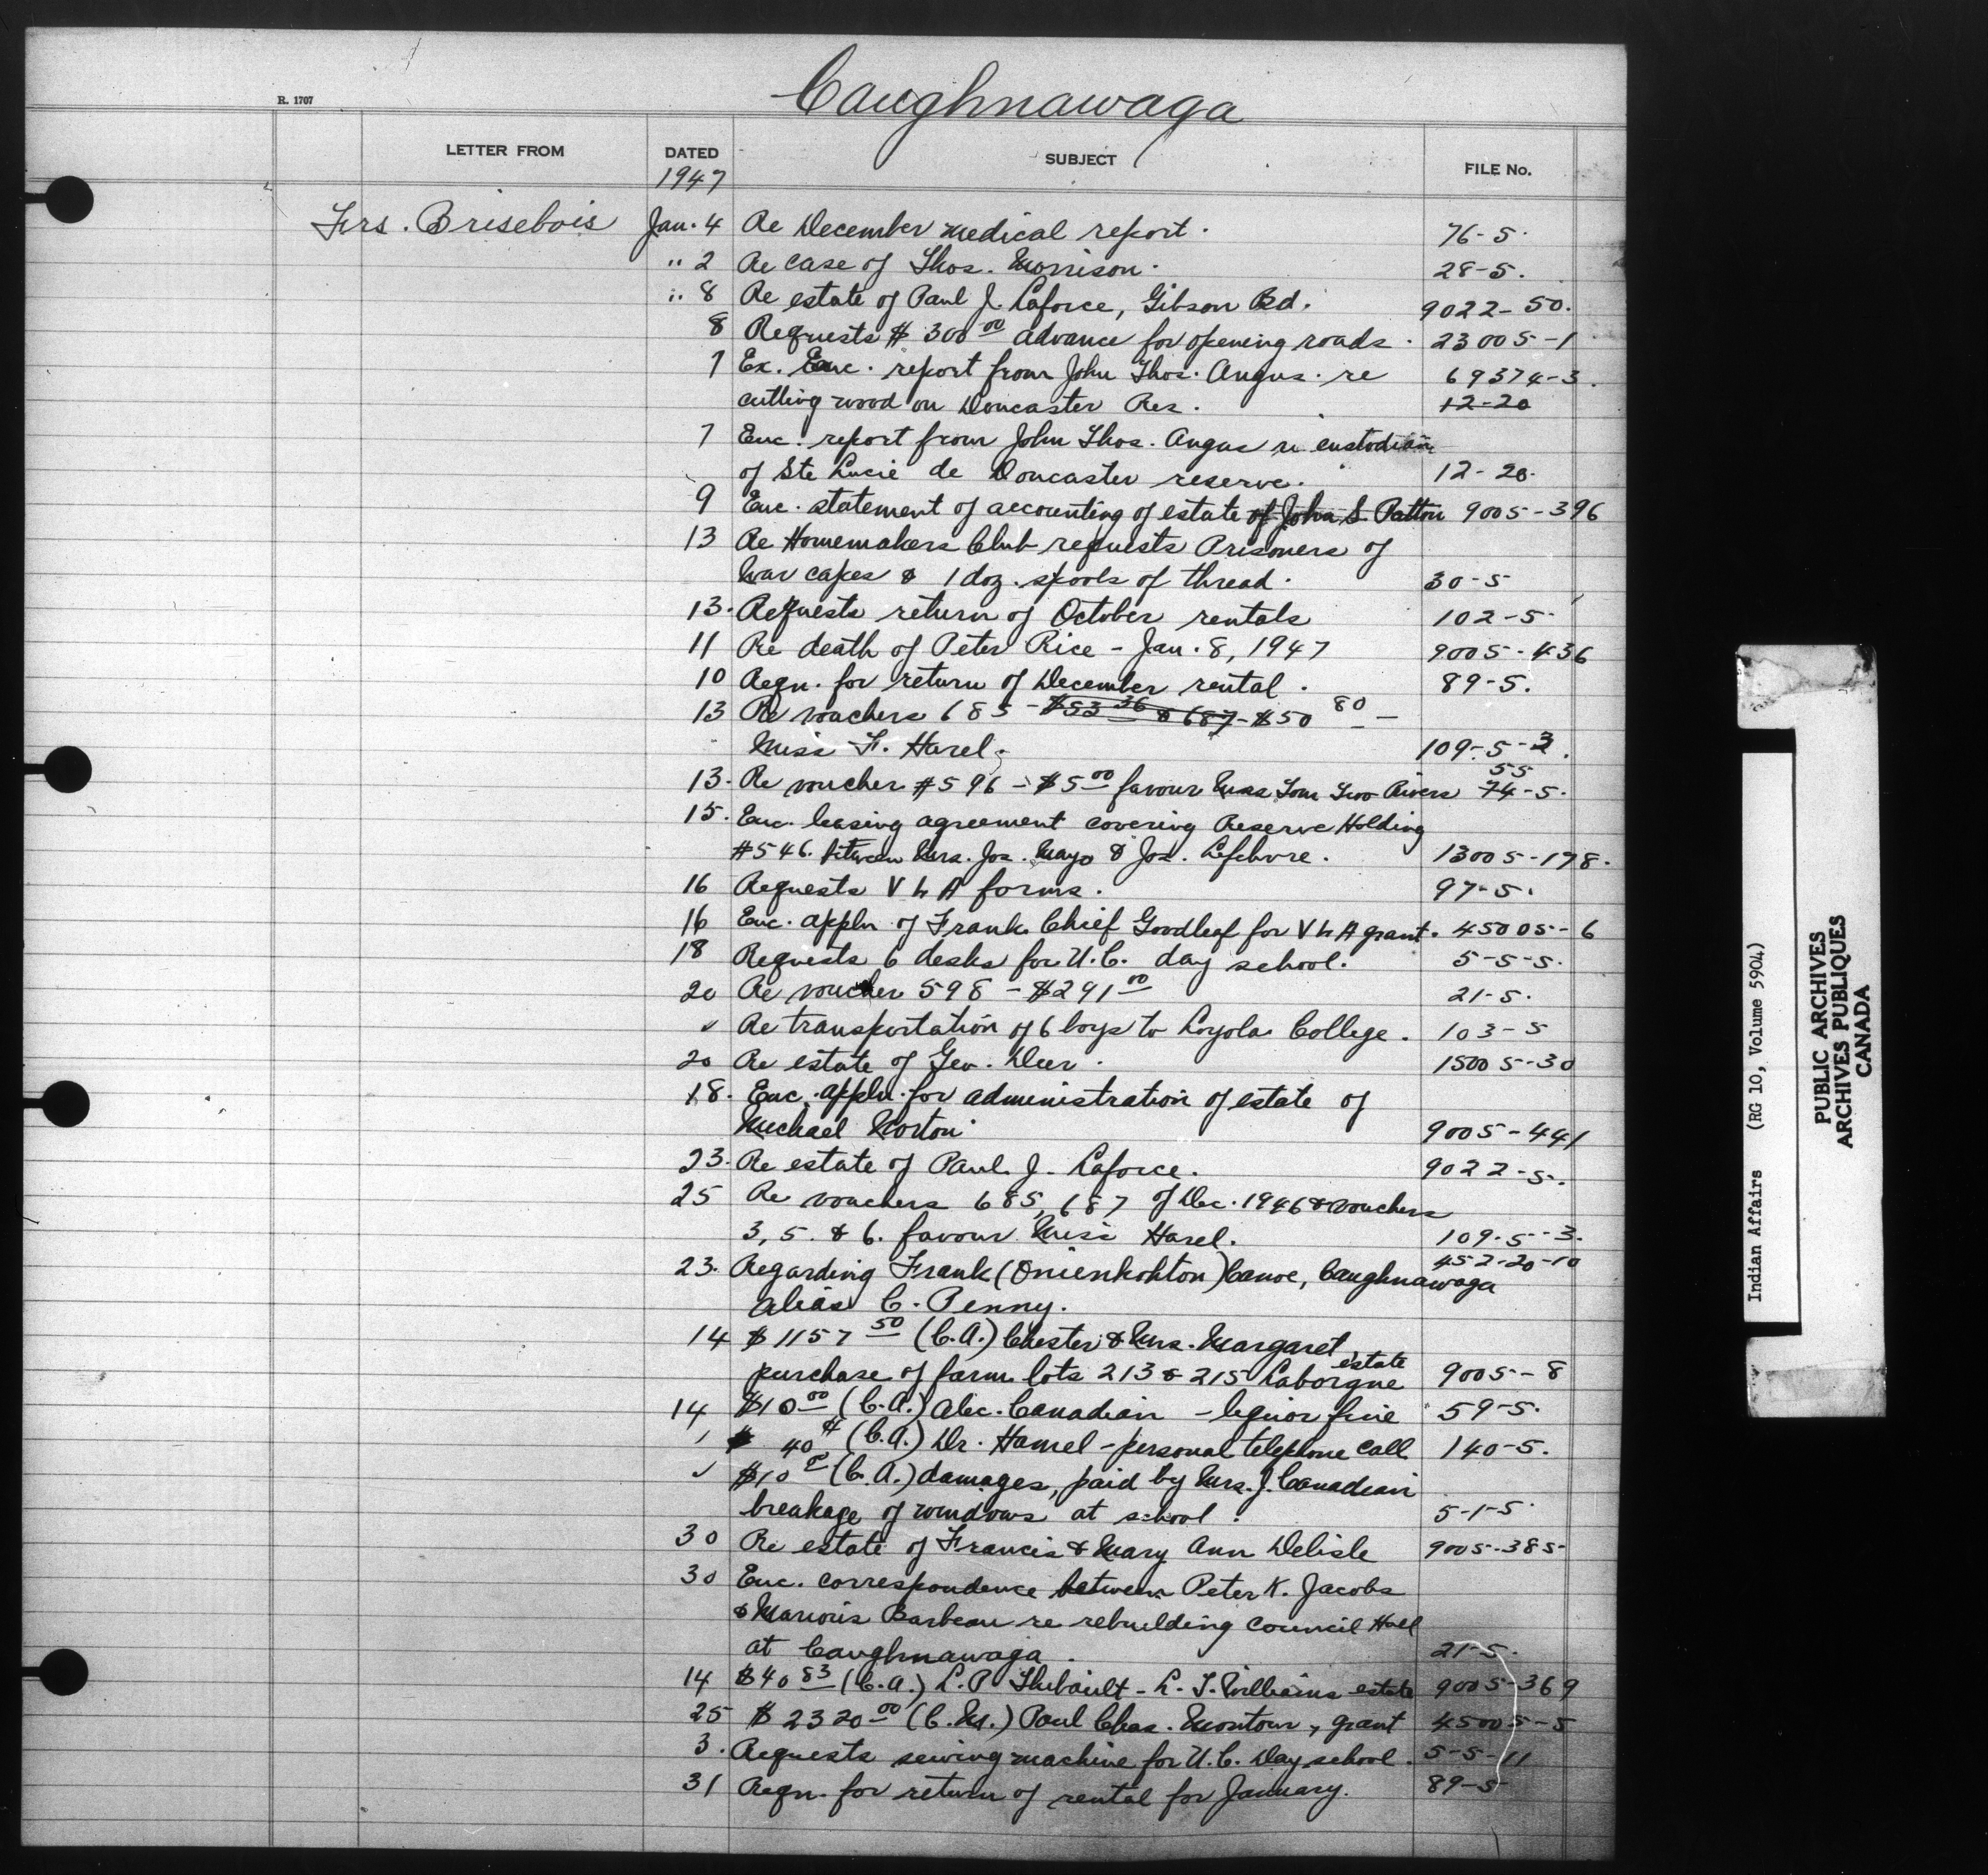 Caughnawaga
R. 1707
LETTER FROM DATED SUBJECT FILE No.
1947
Frs. Brisebois Jan. 4 Re December medical report. 76-5.
" 2 Re case of Thos. Morrison. 28-5.
" 8 Re estate of Paul J. Laforce, Gibson Bd. 9022-50.
8 Requests $300 00 advance for opening roads. 23005-1
7 Ex. Enc. report from John Thos. Angus. re 69374-3.
cutting wood on Doncaster Res. 12-20
7 Enc. report from John Thos. Angus re custodian
of Ste Lucie de Doncaster reserve. 12-20.
9 Enc. statement of accounting of estate of John S. Patton 9005-396
13 Re Homemakers Club requests Prisoners of
War capes & 1 doz. spools of thread. 30-5
13. Requests return of October rentals 102-5.
11 Re death of Peter Rice - Jan. 8, 1947 9005-436
10 Reqn. for return of December rental. 89-5.
13 Re vouchers 685 - $53 36 & 687 - $50 80 -
Miss F. Harel. 109-5-3.
13. Re voucher #596 - $5 00 favour Mrs Tom Two Rivers 74-5.
55
15. Enc. leasing agreement covering Reserve Holding
#546. between Mrs. Jos. Mayo & Jos. Lefebvre. 13005-178.
16 Requests V L A forms. 97-5.
16 Enc. appln of Frank Chief Goodleaf for V L A grant. 45005-6
18 Requests 6 desks for U.C. day school. 5-5-5.
20 Re voucher 598 - $291 00 21-5.
✓ Re transportation of 6 boys to Loyola College. 103-5
20 Re estate of Geo. Deer. 15005-30
18. Enc. appln. for administration of estate of
Michael Norton 9005-441
23. Re estate of Paul J. Laforce. 9022-5.
25 Re vouchers 685, 687 of Dec. 1946 & vouchers
3, 5. & 6. favour Miss Harel. 109-5-3.
23. Regarding Frank (Onienkohton) Canoe, Caughnawaga 452-20-10
alias C. Penny.
14 $1157 50 (C.A.) Chester & Mrs. Margaret
purchase of farm lots 213 & 215 Laborgne estate 9005-8
14 $10 00 (C.A.) Alec. Canadian - liquor fine 59-5.
✓ 40¢ (C.A.) Dr. Hamel - personal telephone call 140-5.
✓ $10 00 (C.A.) damages, paid by Mrs. J. Canadian
breakage of windows at school. 5-1-5.
30 Re estate of Francis & Mary Ann Delisle 9005-385
30 Enc. correspondence between Peter K. Jacobs
& Marius Barbeau re rebuilding Council Hall
at Caughnawaga. 21-5.
14 $40 83 (C.A.) L.P. Thibault - L. T. Williams estate 9005-369
25 $2320 00 (C.M.) Paul Chas. Montour, grant 45005-5
3. Requests sewing machine for U.C. Day school. 5-5-11
31 Reqn. for return of rental for January. 89-5
Indian Affairs (RG 10, Volume 5904)
PUBLIC ARCHIVES
ARCHIVES PUBLIQUES
CANADA